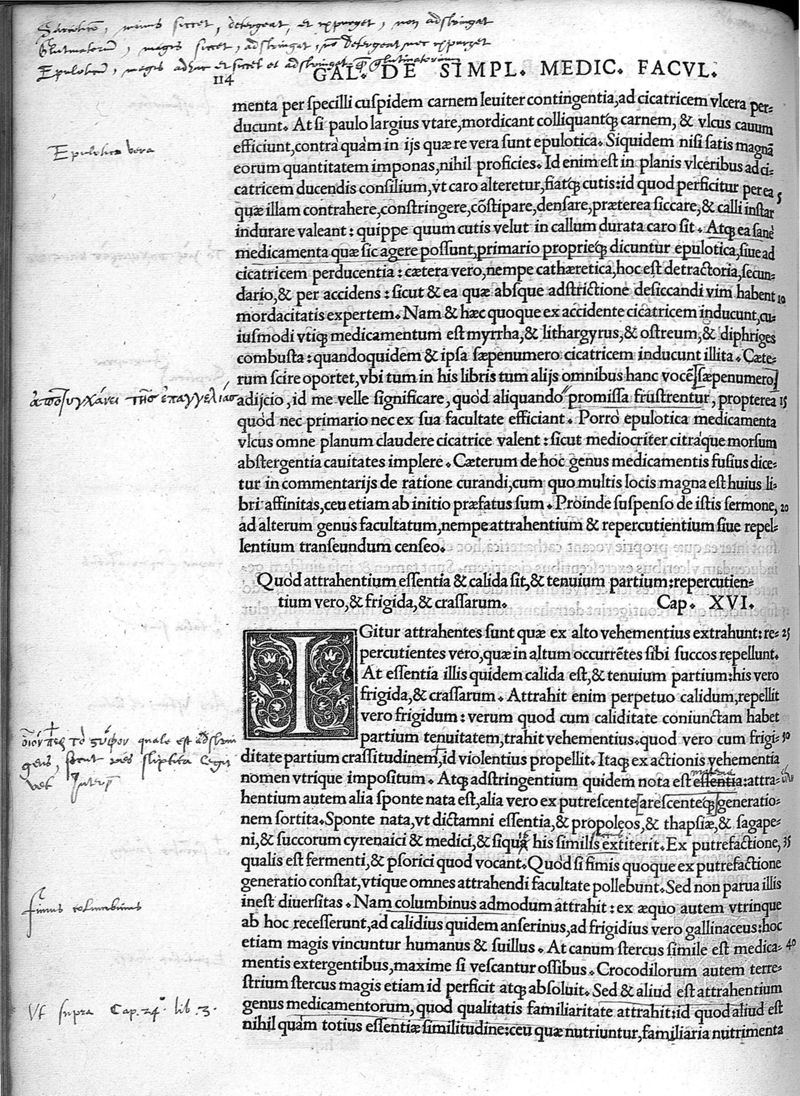 Sarcoticõ, minus siccet, detergeat, et expurget, non adstringat
Glutinatoriũ, magis siccet, adstringat, nõ detergeat nec expurget
Epuloticũ, magis adhuc et siccet et adstringat q̃ glutinatorium
114
GAL. DE SIMPL. MEDIC. FACVL.
menta per specilli cuspidem carnem leuiter contingentia, ad cicatricem vlcera per-
ducunt. At si paulo largius vtare, mordicant colliquantq; carnem, & vlcus cauum
efficiunt, contra quàm in ijs quæ re vera sunt epulotica. Siquidem nisi satis magnã
Epulotica vera
eorum quantitatem imponas, nihil proficies. Id enim est in planis vlceribus ad ci-
catricem ducendis consilium, vt caro alteretur, fiatq; cutis: id quod perficitur per ea
5
quæ illam contrahere, constringere, cõstipare, densare, præterea siccare, & calli instar
indurare valeant: quippe quum cutis velut in callum durata caro sit. Atq; ea sanè
medicamenta quæ sic agere possunt, primario proprieq; dicuntur epulotica, siue ad
cicatricem perducentia: cætera vero, nempe cathæretica, hoc est detractoria, secun-
dario, & per accidens: sicut & ea quæ absque adstrictione desiccandi vim habent
10
mordacitatis expertem. Nam & hæc quoque ex accidente cicatricem inducunt, cu-
iusmodi vtiq; medicamentum est myrrha, & lithargyrus, & ostreum, & diphriges
combusta: quandoquidem & ipsa sæpenumero cicatricem inducunt illita. Cæte-
rum scire oportet, vbi tum in his libris tum alijs omnibus hanc vocẽ [sæpenumero]
τῆς ἐπαγγελίας
adijcio, id me velle significare, quòd aliquando promissa frustrentur, propterea
15
quòd nec primario nec ex sua facultate efficiant. Porrò epulotica medicamenta
vlcus omne planum claudere cicatrice valent: sicut mediocriter citráque morsum
abstergentia cauitates implere. Cæterum de hoc genus medicamentis fusius dice-
tur in commentarijs de ratione curandi, cum quo multis locis magna est huius li-
bri affinitas, ceu etiam ab initio præfatus sum. Proinde suspenso de istis sermone,
20
ad alterum genus facultatum, nempe attrahentium & repercutientium siue repel-
lentium transeundum censeo.
Quòd attrahentium essentia & calida sit, & tenuium partium: repercutien-
tium vero, & frigida, & crassarum. Cap. XVI.
IGitur attrahentes sunt quæ ex alto vehementius extrahunt: re-
25
percutientes vero, quæ in altum occurrẽtes sibi succos repellunt.
At essentia illis quidem calida est, & tenuium partium: his vero
frigida, & crassarum. Attrahit enim perpetuo calidum, repellit
vero frigidum: verum quod cum caliditate coniunctam habet
partium tenuitatem, trahit vehementius. quod vero cum frigi-
30
ditate partium crassitudinem, id violentius propellit. Itaq; ex actionis vehementia
nomen vtrique impositum. Atq; adstringentium quidem nota est essentia: attra-
materia
hentium autem alia sponte nata est, alia vero ex putrescente [arescenteq;] generatio-
nem sortita. Sponte nata, vt dictamni essentia, & propoleos, & thapsiæ, & sagape-
ni, & succorum cyrenaici & medici, & siqua his similis extiterit. Ex putrefactione,
35
qualis est fermenti, & psorici quod vocant. Quòd si fimis quoque ex putrefactione
generatio constat, vtique omnes attrahendi facultate pollebunt. Sed non parua illis
inest diuersitas. Nam columbinus admodum attrahit: ex æquo autem vtrinque
fimus columbinus
ab hoc recesserunt, ad calidius quidem anserinus, ad frigidius vero gallinaceus: hoc
etiam magis vincuntur humanus & suillus. At canum stercus simile est medica-
40
mentis extergentibus, maxime si vescantur ossibus. Crocodilorum autem terre-
strium stercus magis etiam id perficit atq; absoluit. Sed & aliud est attrahentium
genus medicamentorum, quod qualitatis familiaritate attrahit: id quod aliud est
Vt supra Cap. 24. lib. 3.
nihil quàm totius essentiæ similitudine: ceu quæ nutriuntur, familiaria nutrimenta